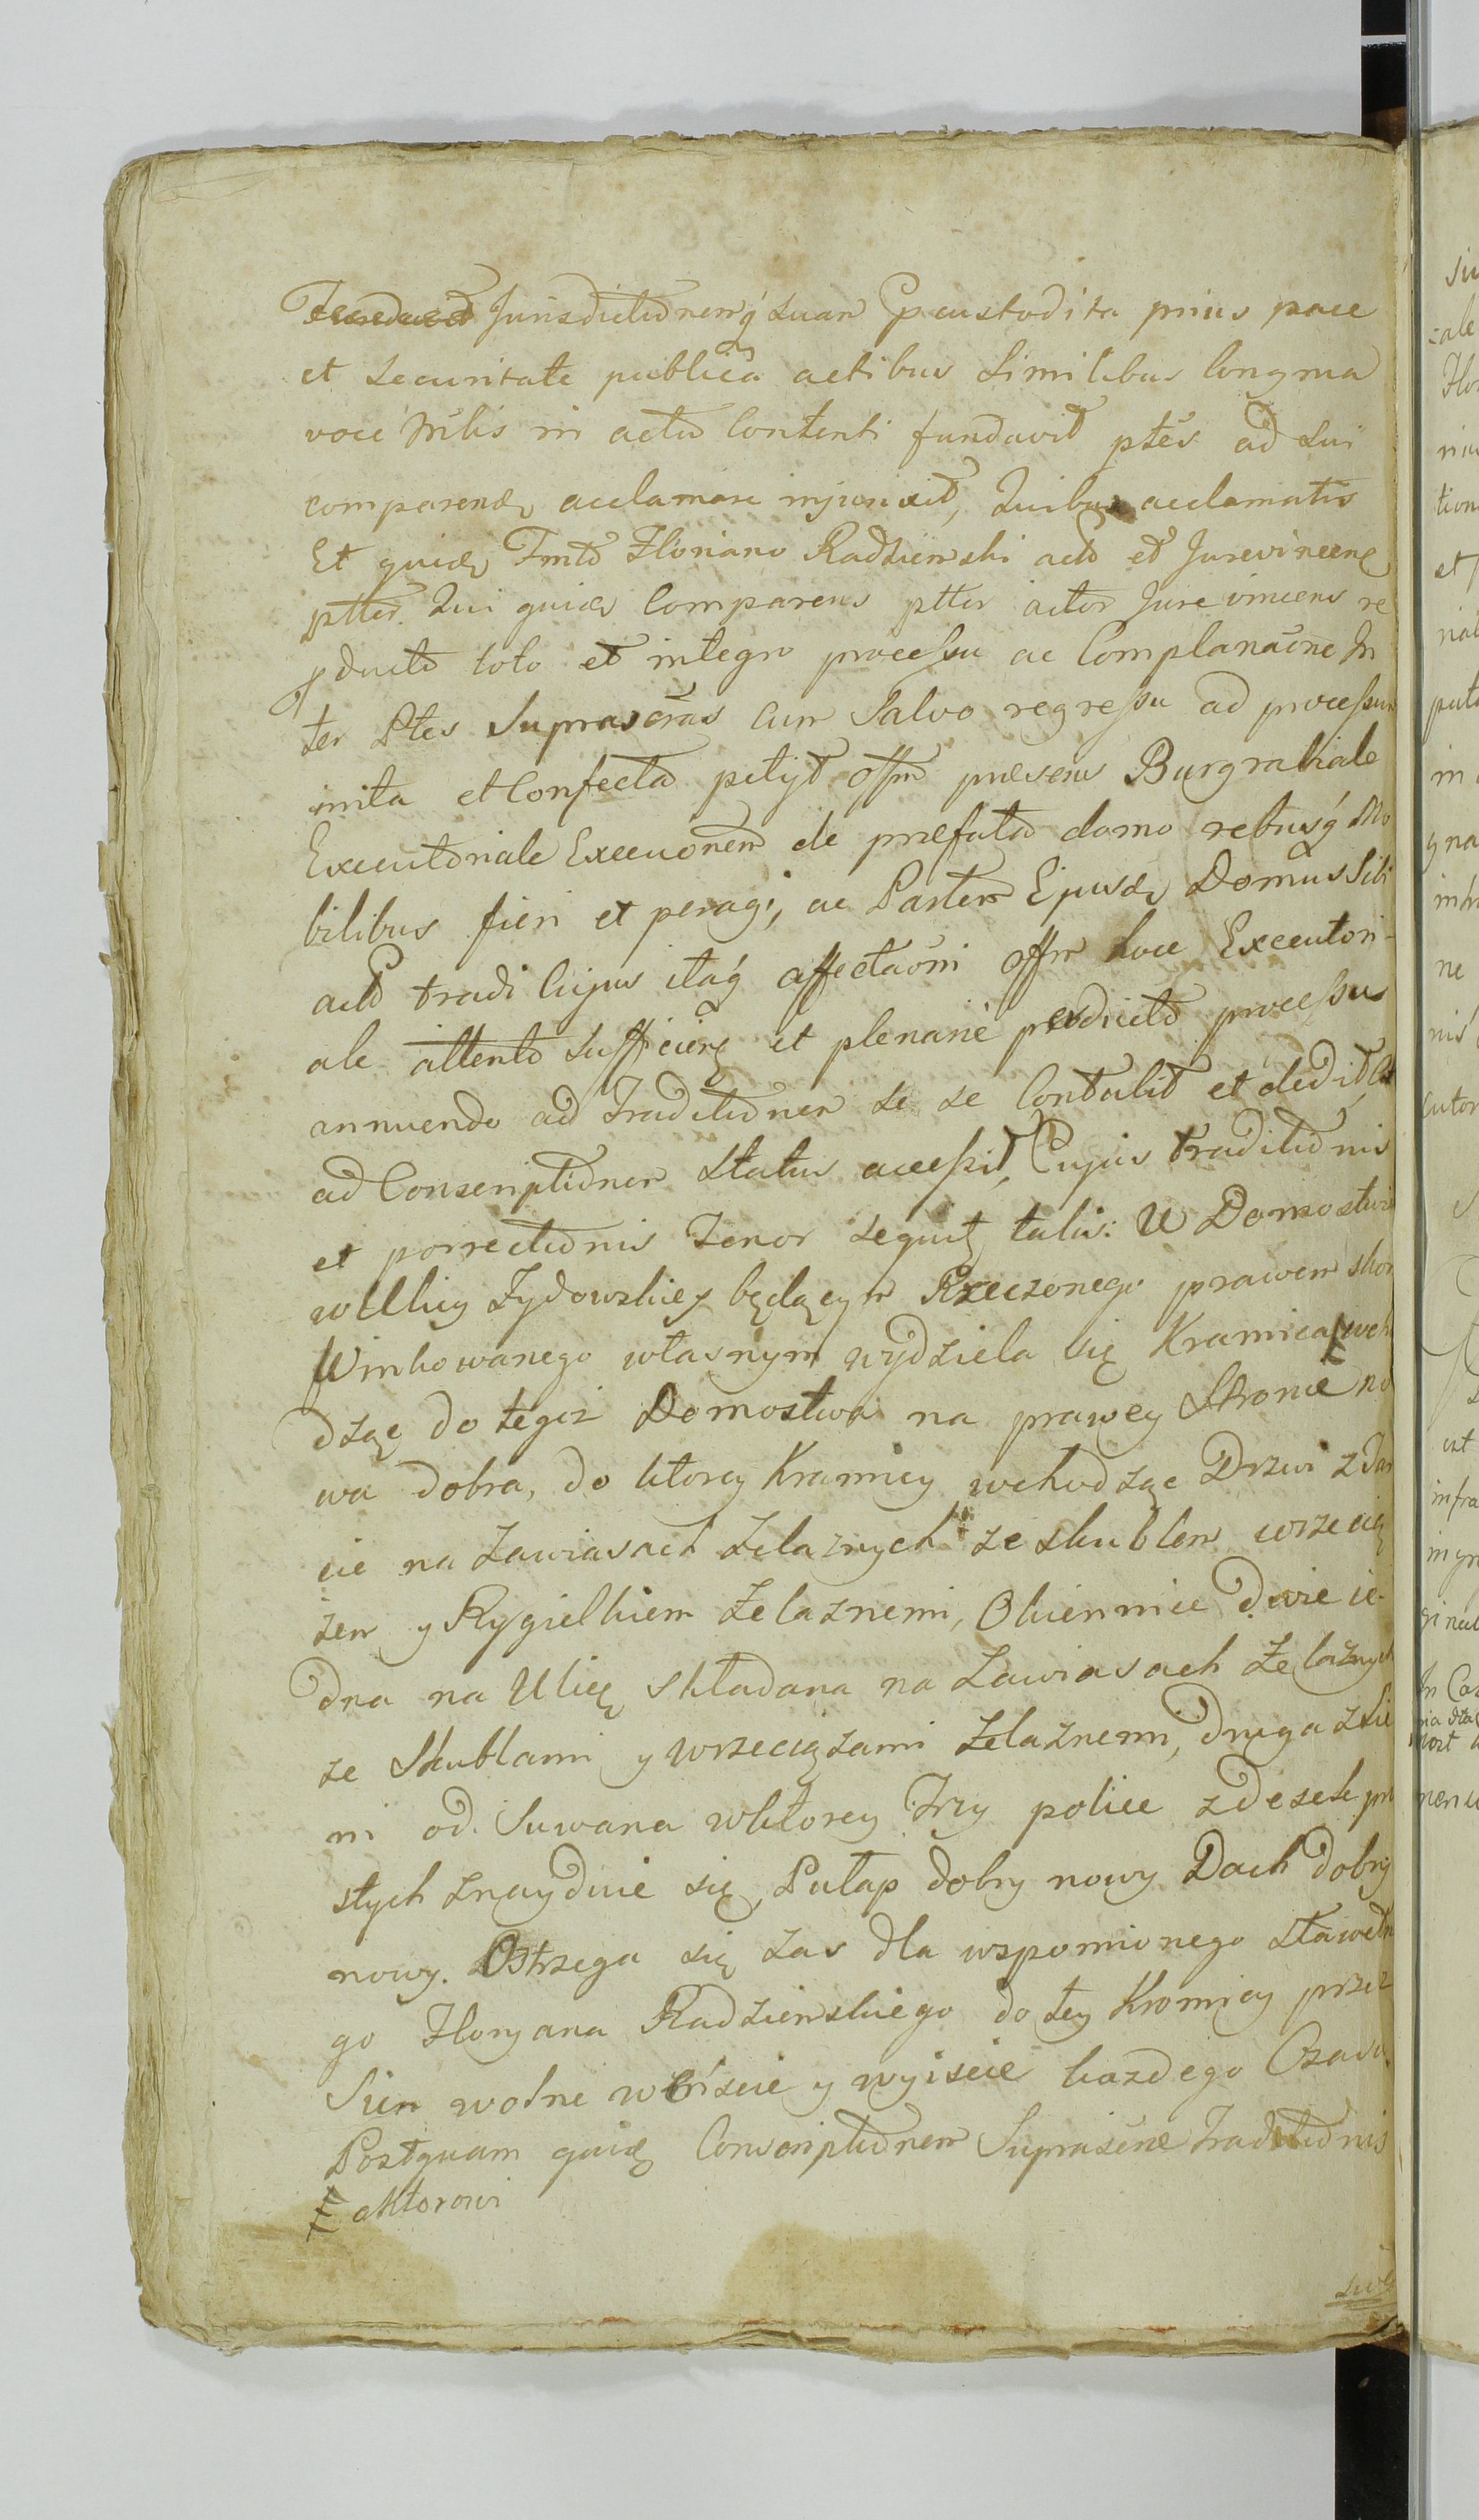 Jurisdictionemq́ suam p custodita prius pace
et securitate publicâ actibus similibus longma
voce Mtlis in actu Contenti fundavit ptes ad sui
comparend acclamare injunxit, Quibus acclamatis
Et quid Fmto Floriano Radzienski acto et Jurevincene
ptter. Qui quid Comparens ptter actor Jure vincens re
pducto toto et integro processu ac Complanaone In
ter Ptes Suprascras cum Salvo regressu ad processum
inita et Confecta petijt offm praesens Burgrabiale
Executoriale Execuonem de praefata domo rebusq́ Mo
bilibus fieri et peragi, ac Partem Ejusd Domus Sibi
acto tradi Cujus itaq́ affectaoni offm hocce Executori-
ale attento sufficien et plenarie prodducto processus
annuendo ad Traditionem se se Contulit et dedit, Ac
ad Conscriptionem Status accessit, Cujus traditionis
et porrectionis Tenor sequit talis: W Domostwie
w Ulicy Zydowskiey będącym Rzeczonego prawem skon
Winkowanego własnym wydziela się Kramica wcho
dząc do tegoż Domostwa na prawey Stronie no
wa dobra, do ktorey Kramicy wchodząc Drzwi z Dar
cic na Zawiasach żelaznych ze skublem wrzecią
żem y Rygielkiem żelaznemi, Okiennice dwie ie-
dna na Ulicę składana na Zawiasach żelaznych
ze Skublami y wrzeciążami żelaznemi, druga z Sie
ni od Suwana w ktorey Trzy police z desek pro
stych znayduie się, Pułap dobry nowy Dach dobry
nowy. Ostrzega się zas dla wspomionego Sławetne
go Floryana Radzienskiego do tey Kromicy przez
Sien wolne weiscie y wyiscie kazdego Czasu.
Postquam quid Conscriptionem Suprascne Traditionis
aktorowi